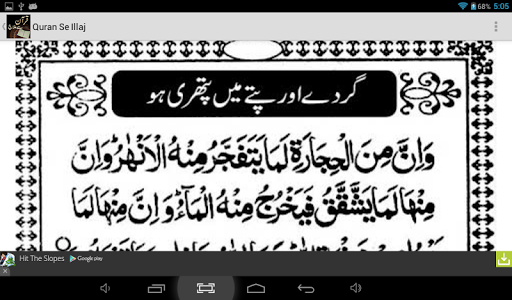 68% 5:05
Quran Se Illaj
گردے اور پتے میں پتھری ہو
وَاِنَّ مِنَ الْحِجَارَةِ لَمَا يَتَفَجَّرُ مِنْهُ الْاَنْهٰرُ وَاِنَّ
مِنْهَا لَمَا يَشَّقَّقُ فَيَخْرُجُ مِنْهُ الْمَآءُ وَاِنَّ مِنْهَا لَمَا
Hit The Slopes Google play